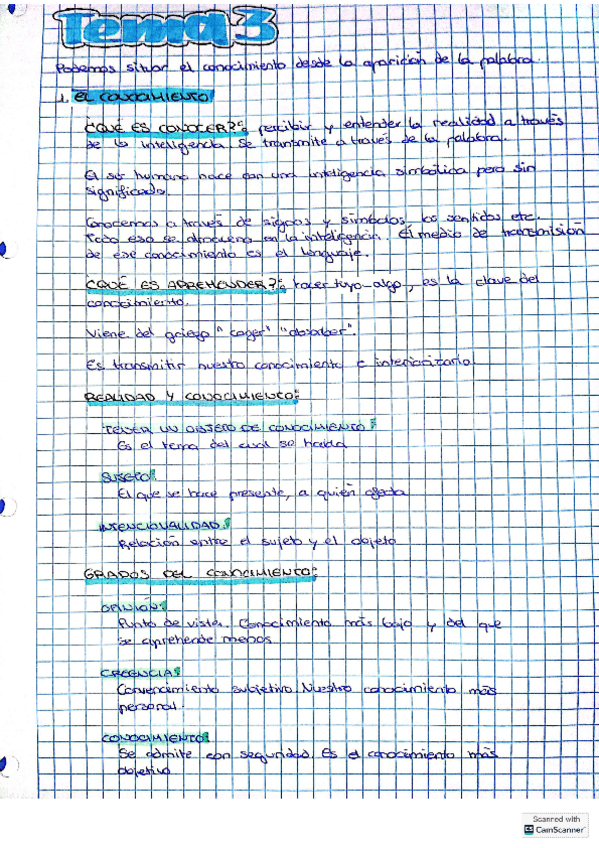 Tema 3
Podemos situar el conocimiento desde la aparición de la palabra.
1. EL CONOCIMIENTO
¿QUÉ ES CONOCER?: percibir y entender la realidad a través
de la inteligencia. Se transmite a través de la palabra.
El ser humano nace con una inteligencia simbólica pero sin
significado.
Conocemos a través de signos y símbolos, los sentidos etc.
Todo eso se almacena en la inteligencia. El medio de transmisión
de ese conocimiento es el lenguaje.
¿QUÉ ES APREHENDER?: hacer tuyo algo, es la clave del
conocimiento.
Viene del griego "coger" "absorber".
Es transmitir nuestro conocimiento e interiorizarlo.
REALIDAD Y CONOCIMIENTO:
TENER UN OBJETO DE CONOCIMIENTO:
Es el tema del cual se habla
SUJETO:
El que se hace presente, a quién afecta
INTENCIONALIDAD:
Relación entre el sujeto y el objeto
GRADOS DEL CONOCIMIENTO:
OPINIÓN:
Punto de vista. Conocimiento más bajo y del que
se aprehende menos
CREENCIA:
Convencimiento subjetivo. Nuestro conocimiento más
personal.
CONOCIMIENTO:
Se admite con seguridad. Es el conocimiento más
objetivo
Scanned with
CamScanner